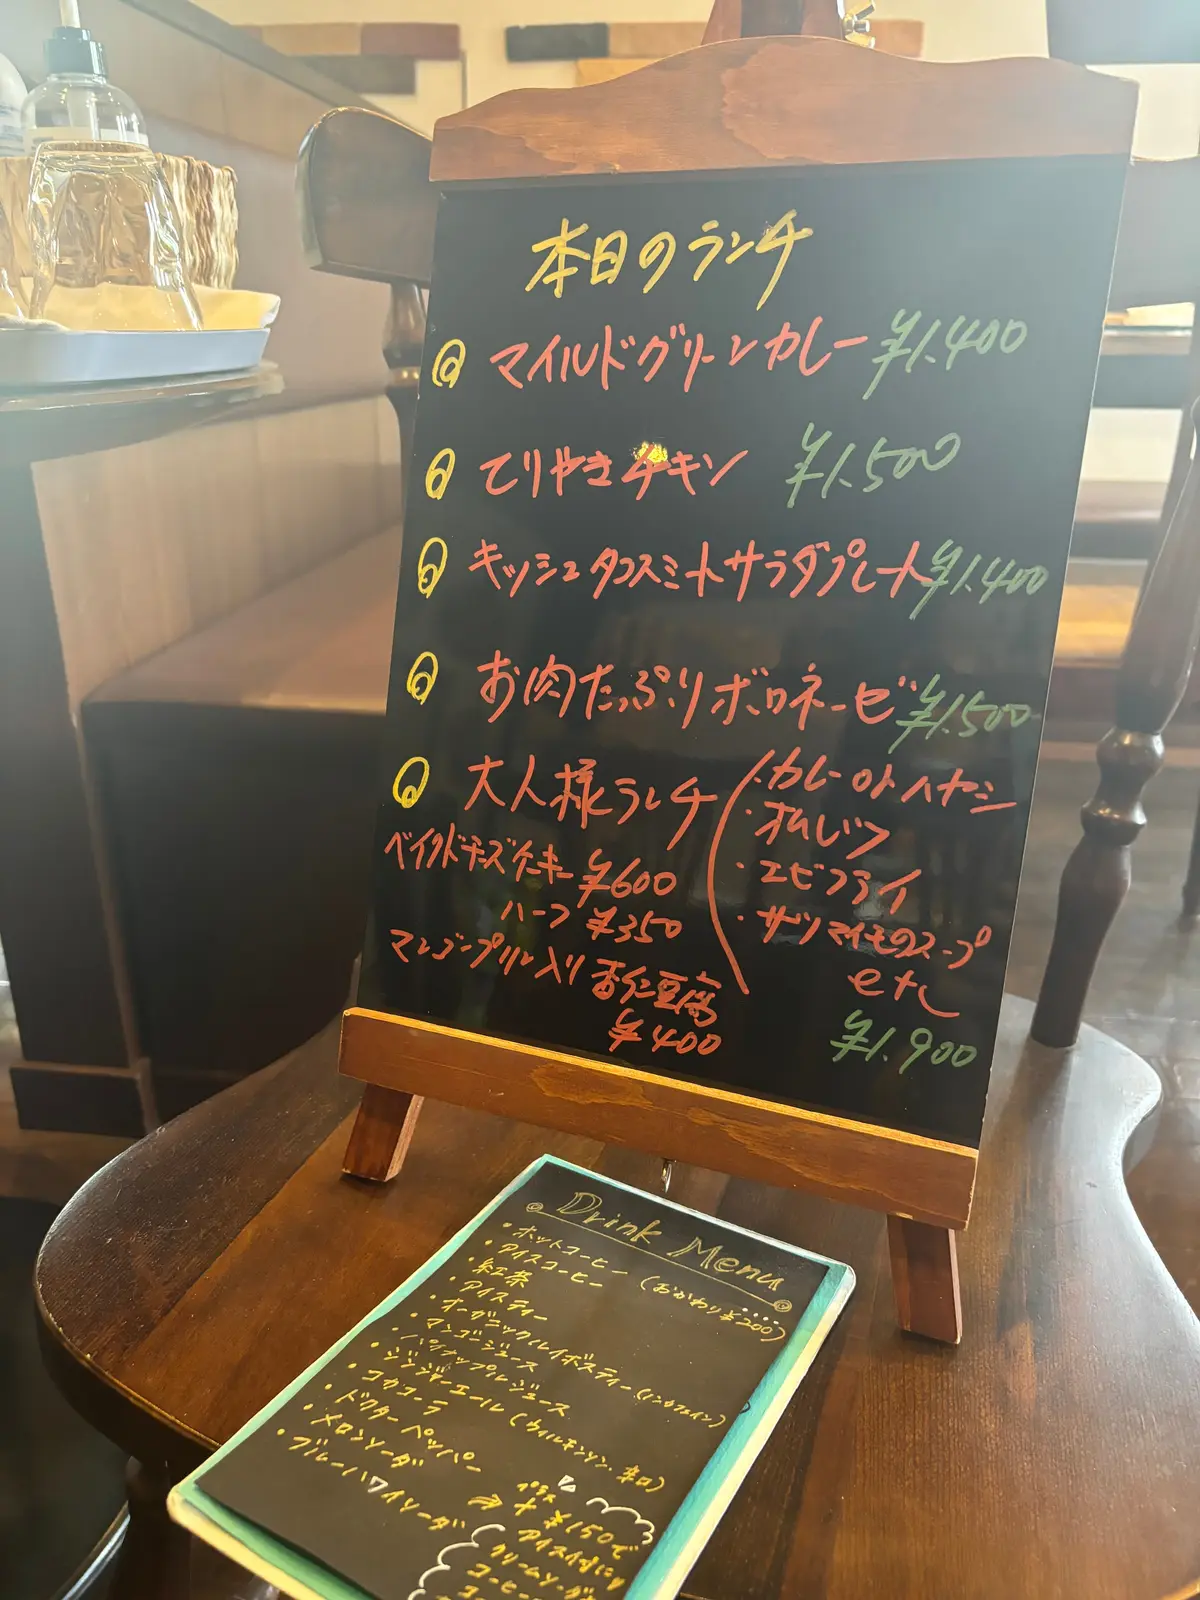 本日のランチ
マイルドグリーンカレー ¥1.400
てりやきチキン ¥1.500
キッシュタコスミートサラダプレート ¥1.400
お肉たっぷりボロネーゼ ¥1.500
大人様ランチ
・カレーorハヤシ
・オムレツ
・エビフライ
・サツマイモのスープ
etc
¥1.900
ベイクドチーズケーキ ¥600
ハーフ ¥350
マンゴープリン入り杏仁豆腐
¥400
Drink Menu
・ホットコーヒー (おかわり¥200)
・アイスコーヒー
・紅茶
・アイスティー
・オーガニックルイボスティー (ノンカフェイン)
・マンゴージュース
・パイナップルジュース
・ジンジャーエール (ウィルキンソン・辛口)
・コカコーラ
・ドクターペッパー
・メロンソーダ
・ブルーハワイソーダ
プラス
⇒ + ¥150で
アイス付に
クリームソーダ
コーヒー